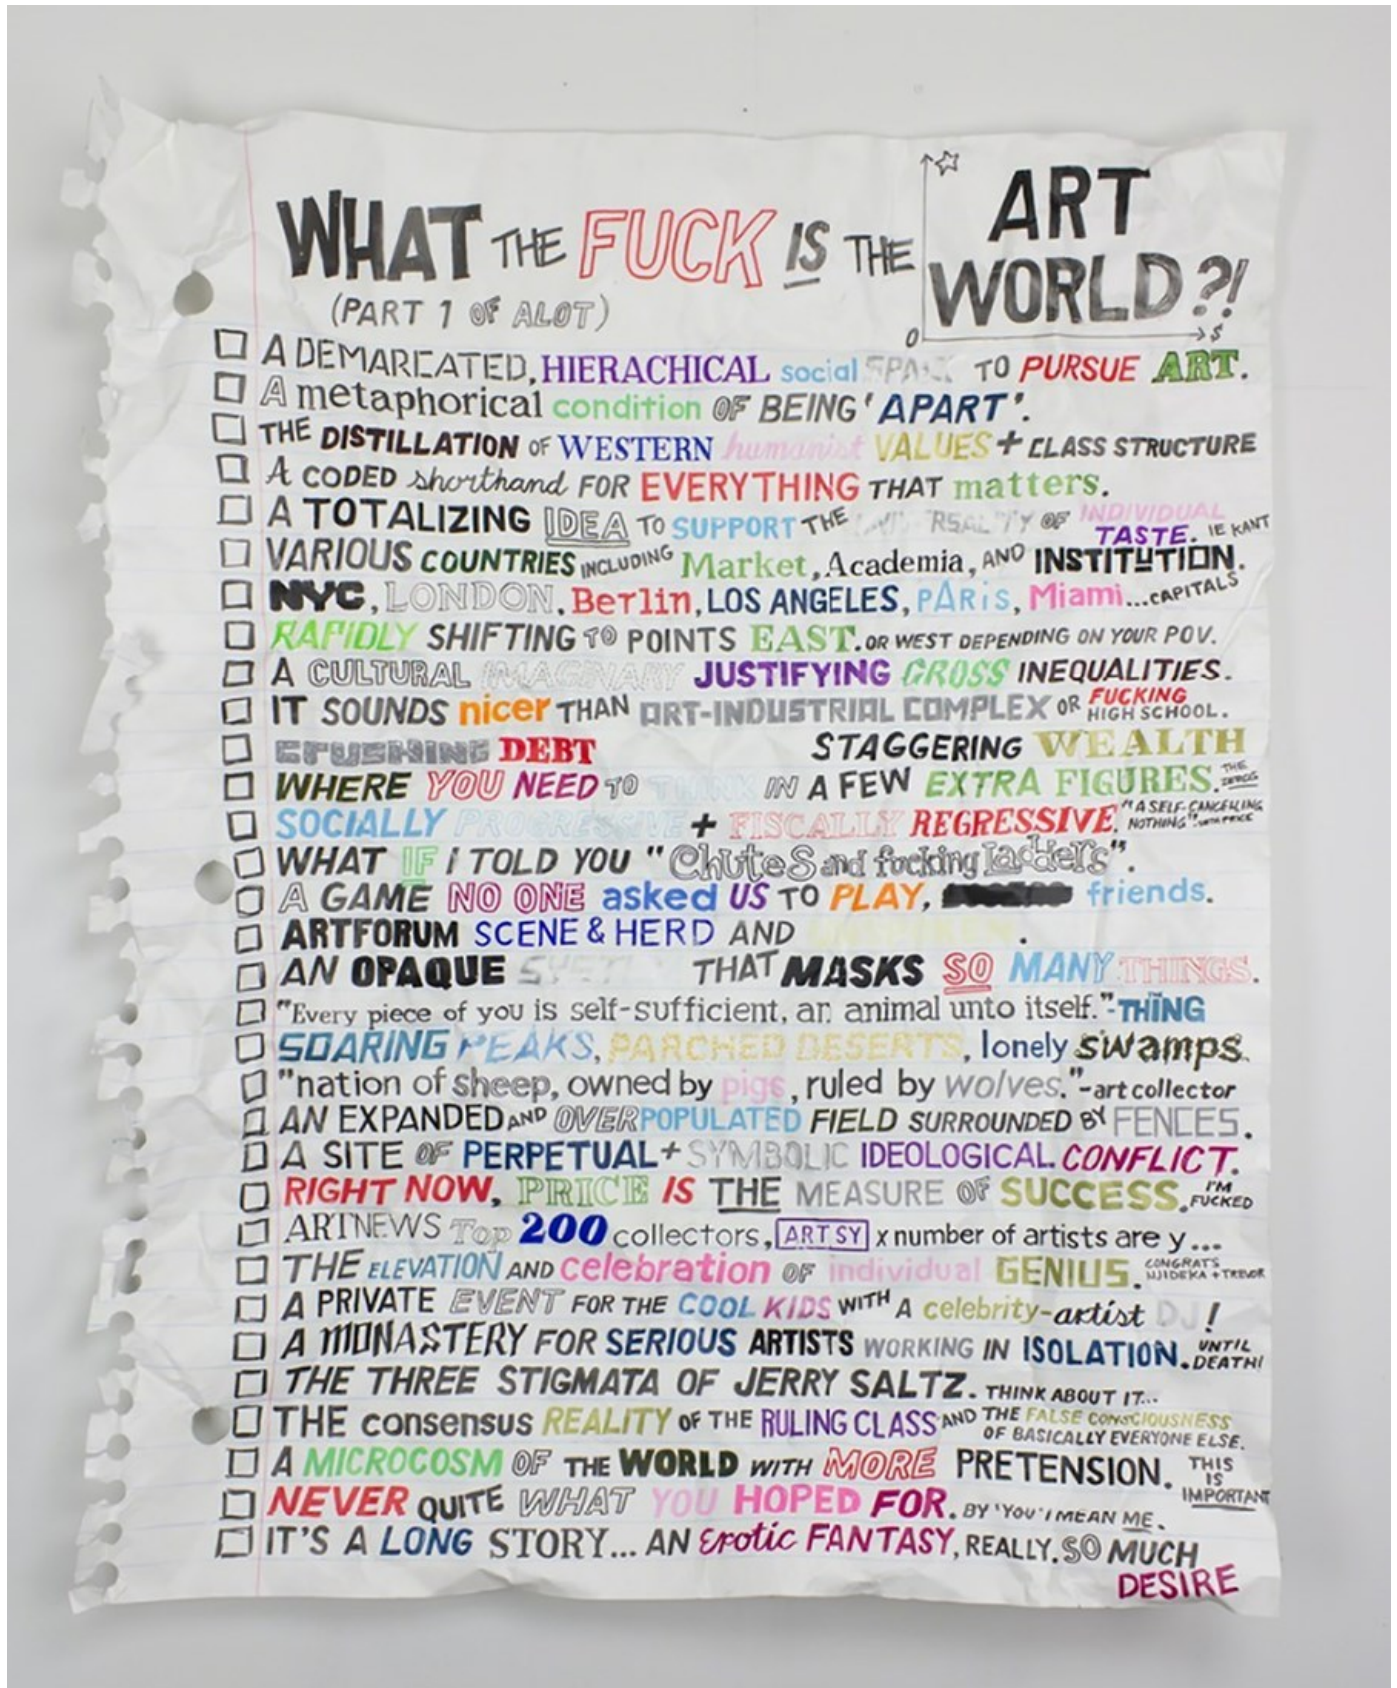 WHAT THE FUCK IS THE ART WORLD?!
(PART 1 OF ALOT)
0 $
A DEMARCATED, HIERACHICAL social TO PURSUE ART.
A metaphorical condition OF BEING 'APART'.
THE DISTILLATION OF WESTERN humanist VALUES + CLASS STRUCTURE
A CODED shorthand FOR EVERYTHING THAT matters.
A TOTALIZING IDEA TO SUPPORT THE OF INDIVIDUAL TASTE. IE KANT
VARIOUS COUNTRIES INCLUDING Market, Academia, AND INSTITUTION.
NYC, LONDON, Berlin, LOS ANGELES, PARis, Miami...CAPITALS
RAPIDLY SHIFTING TO POINTS EAST. OR WEST DEPENDING ON YOUR POV.
A CULTURAL IMAGINARY JUSTIFYING GROSS INEQUALITIES.
IT SOUNDS nicer THAN ART-INDUSTRIAL COMPLEX OR FUCKING HIGH SCHOOL.
CRUSHING DEBT STAGGERING WEALTH
WHERE YOU NEED TO THINK IN A FEW EXTRA FIGURES. THE ZEROS
SOCIALLY PROGRESSIVE + FISCALLY REGRESSIVE. "A SELF-CANCELLING NOTHING"
WHAT IF i TOLD YOU "ChuteS and fucking Ladders".
A GAME NO ONE asked US TO PLAY, friends.
ARTFORUM SCENE & HERD AND .
AN OPAQUE THAT MASKS SO MANY THINGS.
"Every piece of you is self-sufficient, an animal unto itself."-THING
SOARING PEAKS, PARCHED DESERTS, lonely swamps.
"nation of sheep, owned by pigs, ruled by wolves."-art collector
AN EXPANDED AND OVERPOPULATED FIELD SURROUNDED BY FENCES.
A SITE OF PERPETUAL + SYMBOLIC IDEOLOGICAL CONFLICT.
RIGHT NOW, PRICE IS THE MEASURE OF SUCCESS. I'M FUCKED
ARTNEWS Top 200 collectors, ARTSY x number of artists are y...
THE ELEVATION AND celebration OF individual GENIUS. CONGRATS NJIDEKA + TREVOR
A PRIVATE EVENT FOR THE COOL KIDS WITH A celebrity-artist DJ!
A MONASTERY FOR SERIOUS ARTISTS WORKING IN ISOLATION. UNTIL DEATH!
THE THREE STIGMATA OF JERRY SALTZ. THINK ABOUT IT...
THE consensus REALITY OF THE RULING CLASS AND THE FALSE CONSCIOUSNESS OF BASICALLY EVERYONE ELSE.
A MICROCOSM OF THE WORLD WITH MORE PRETENSION. THIS IS IMPORTANT
NEVER QUITE WHAT YOU HOPED FOR. BY 'YOU' I MEAN ME.
IT'S A LONG STORY... AN Erotic FANTASY, REALLY. SO MUCH DESIRE